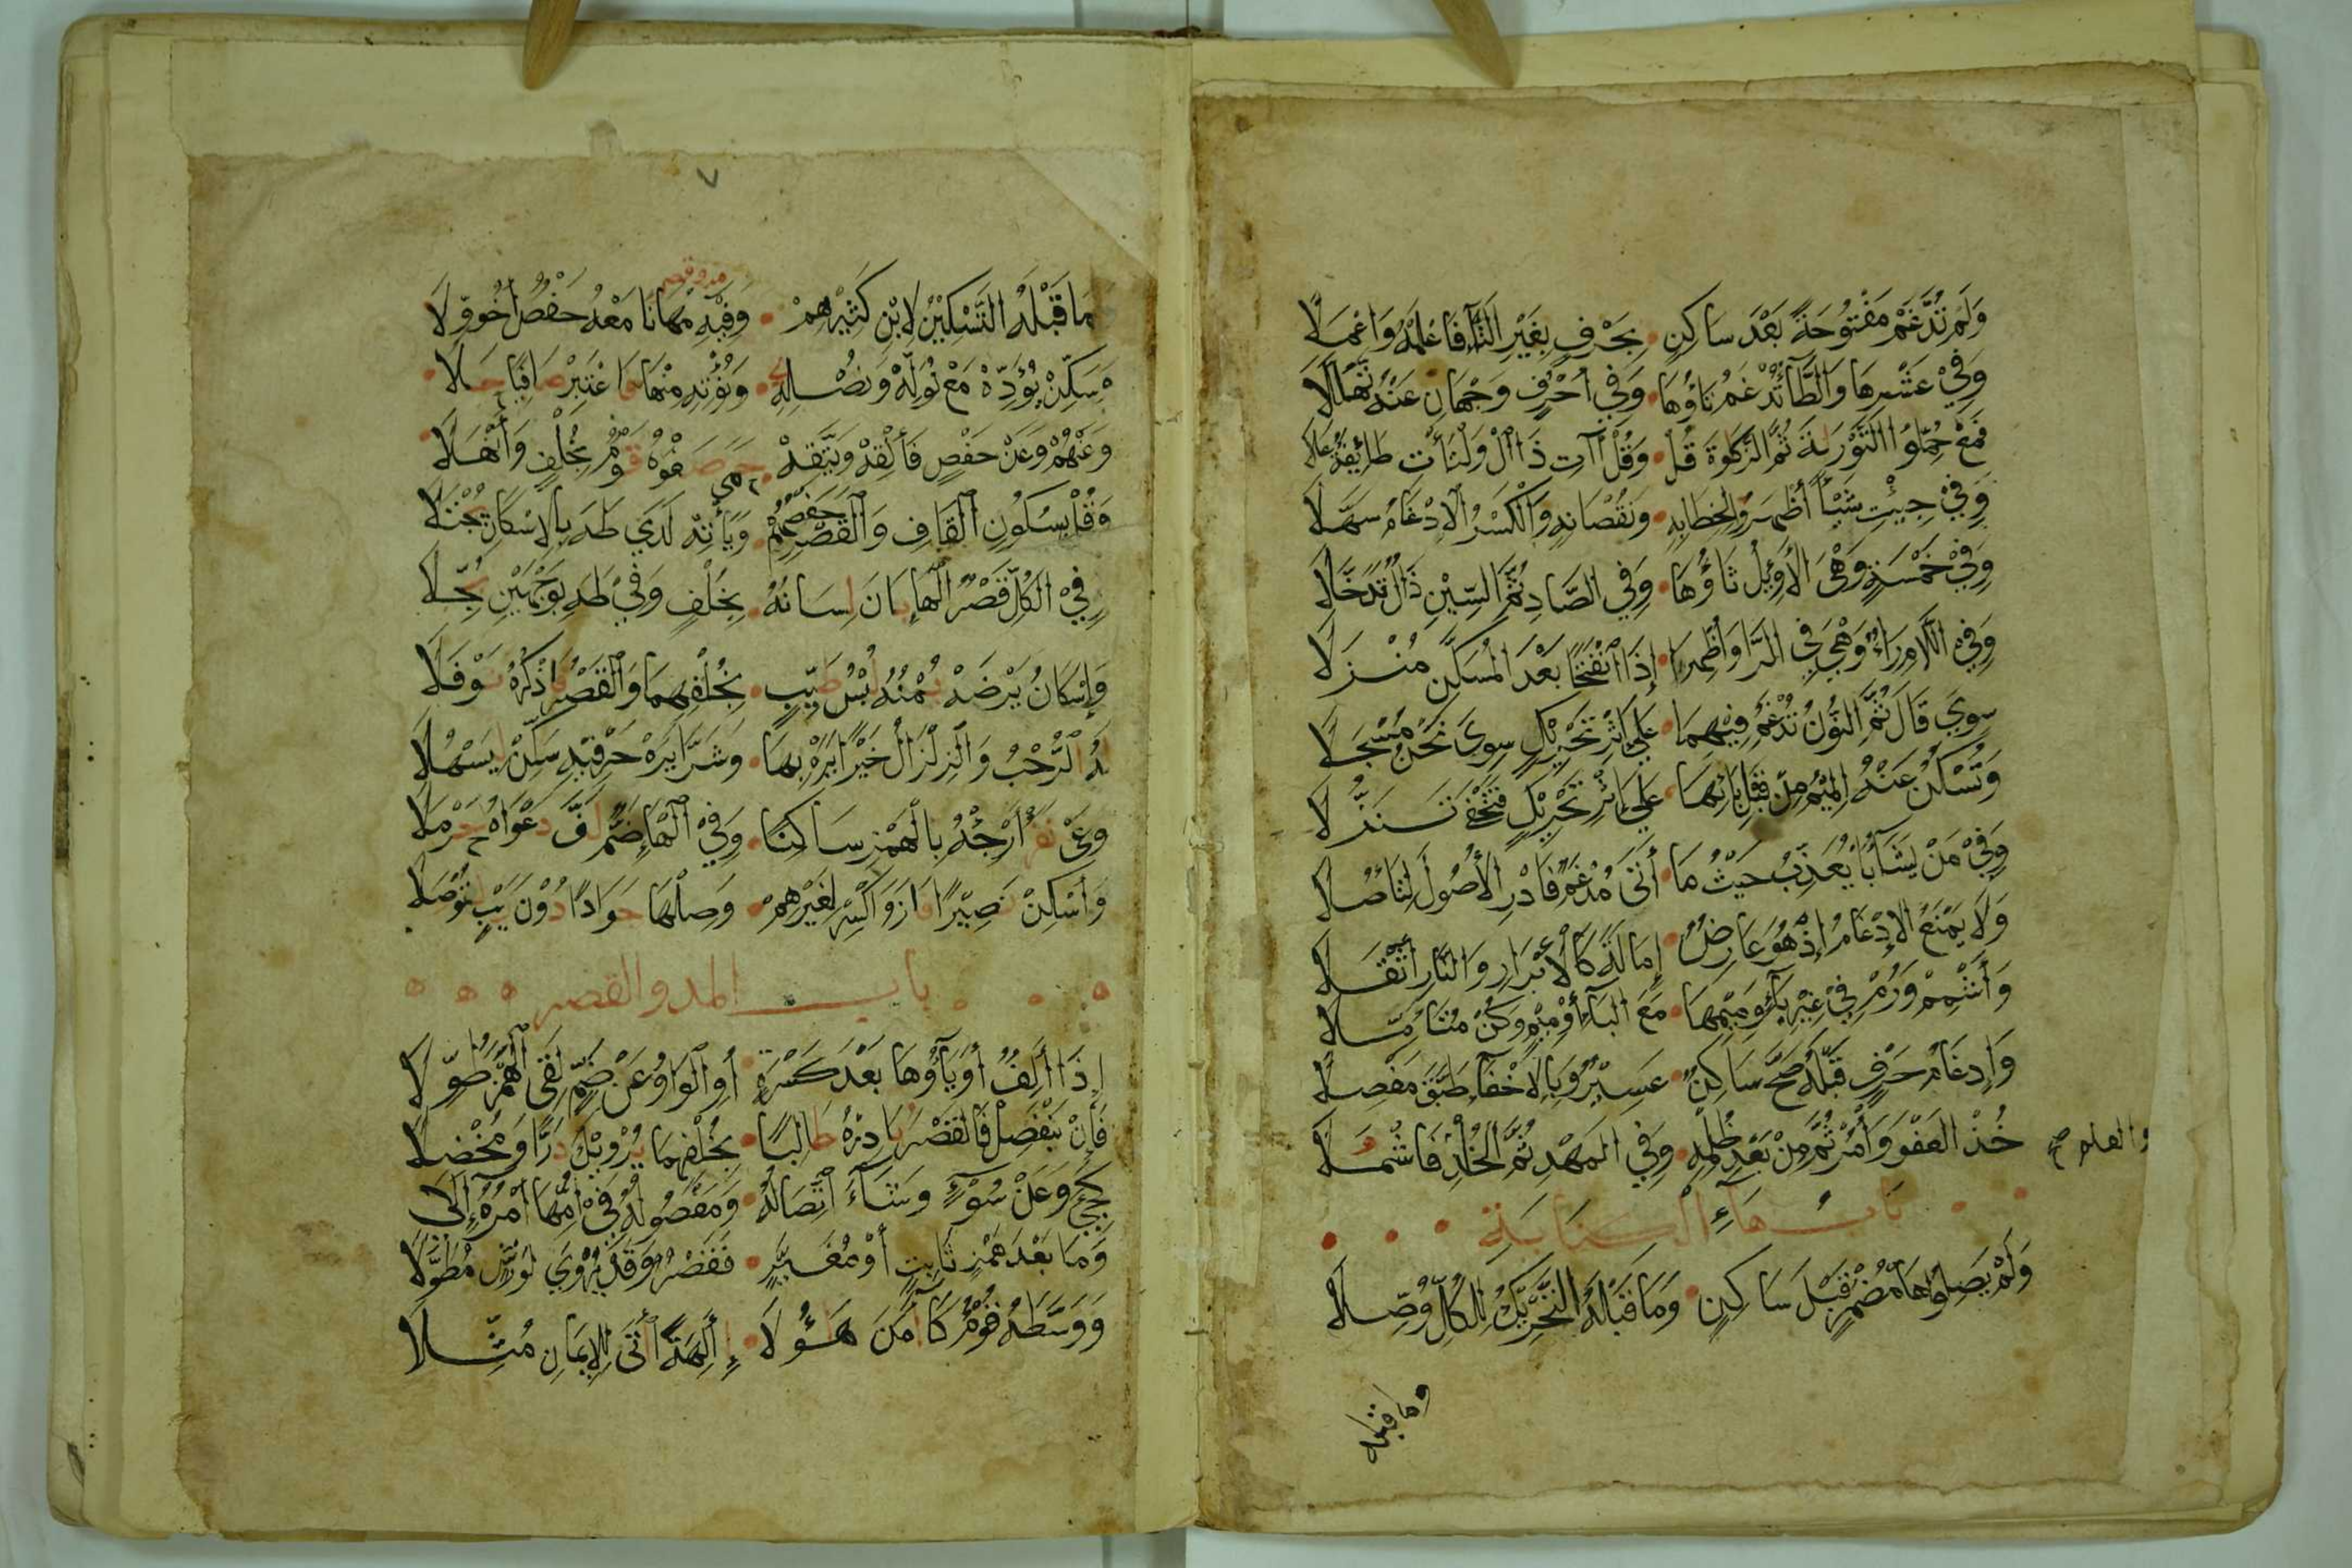 وَلَمْ تُدَّغَمْ مَفْتُوحَةً بَعْدَ سَاكِنٍ • بِحَرْفٍ بِغَيْرِ التَّآءِ فَاعْلَمْهُ وَاعْمَلَا
وَفِيْ عَشْرِهَا وَالطَّآءِ تُدْغَمُ تَاؤُهَا • وَفِي أَحْرُفٍ وَجْهَانِ عَنْهُ تَهَلَّلَا
فَمَعْ حُمِّلُوا التَّوْرَيةَ ثُمَّ الزَّكَوةَ قُلْ • وَقُلْ آتِ ذَا الْ وَلْتَأْتِ طَائِفَةٌ عَلَا
وَفِيْ جِئْتِ شَيْأً أَظْهَرَوا لِخِطَابِهِ • وَنُقْصَانِهِ وَالْكَسْرُ الْاِدْغَامَ سَهَّلَا
وَفِيْ خَمْسَةٍ وَهْيَ الْأَوَئِلُ ثَاؤُهَا • وَفِي الصَّادِ ثُمَّ السِّيْنِ ذَالٌ تَدَخَّلَا
وَفِي اللَّامِ رَاءٌ وَهْيَ فِي الرَّا وَأُظْهِرَا • إِذَا انْفَتَحَا بَعْدَ الْمُسَكَّنِ مُنْزَلَا
سِوَى قَالَ ثُمَّ النُّوْنُ تُدْغَمُ فِيْهِمَا • عَلَى اِثْرِ تَحْرِيْكٍ سِوَى نَحْنُ مُسْجَلَا
وَتُسْكَنُ عَنْهُ الْمِيْمُ مِنْ قَبْلِ بَائِهَا • عَلَى اِثْرِ تَحْرِيْكٍ فَتَخْفَى تَنَزُّلَا
وَفِيْ مَنْ يَشَآءُ بَا يُعَذِّبُ حَيْثُ مَا • أَتَى مُدْغَمٌ فَادْرِ الْأُصُولَ لِتَاْصُلَا
وَلَا يَمْنَعُ الْإِدْغَامُ إِذْ هُوَ عَارِضٌ • إِمَالَةَ كَالْأَبْرَارِ وَالنَّارِ أَثْقَلَا
وَأَشْمِمْ وَرُمْ فِيْ غَيْرِ بَآءٍ وَمِيْمِهَا • مَعَ الْبَآءِ أَوْ مِيْمٍ وَكُنْ مُتَأَمِّلَا
وَإِدْغَامُ حَرْفٍ قَبْلَهُ صَحَّ سَاكِنٌ • عَسِيْرٌ وَبِالْاِخْفَآءِ طَبَّقَ مَفْصِلَا
خُذِ الْعَفْوَ وَأْمُرْ ثُمَّ مِنْ بَعْدِ ظُلْمِهِ • وَفِي الْمَهْدِ ثُمَّ الْخُلْدِ فَاشْمَلَا
والعلم صح
بَابُ هَآءِ الْكِنَايَةِ
وَلَمْ يَصِلُوا هَا مُضْمَرٍ قَبْلَ سَاكِنٍ • وَمَا قَبْلَهُ التَّحْرِيْكُ لِلْكُلِّ وُصِّلَا
وما قبله
٧
مد وقصر
مَا قَبْلَهُ التَّسْكِيْنُ لِابْنِ كَثِيْرِهِمْ • وَفِيْهِ مُهَانًا مَعْهُ حَفْصٌ أَخُو وِلَا
وَسَكِّنْ يُؤَدِّهْ مَعْ نُوَلِّهْ وَنُصْلِهِ • وَنُؤْتِهِ مِنْهَا فَاعْتَبِرْ صَافِيًا حَلَا
وَعَنْهُمْ وَعَنْ حَفْصٍ فَأَلْقِهْ وَيَتَّقِهْ • حَمَى صَفْوَهُ قَوْمٌ بِخُلْفٍ وَأَنْهَلَا
وَقُلْ بِسُكُونِ الْقَافِ وَالْقَصْرِ حَفْصُهُمْ • وَيَأْتِهْ لَدَى طَهَ بِالْإِسْكَانِ يُجْتَلَا
وَفِي الْكُلِّ قَصْرُ الْهَاءِ بَانَ لِسَانُهُ • بِخُلْفٍ وَفِيْ طَهَ بِوَجْهَيْنِ بُجِّلَا
وَإِسْكَانُ يَرْضَهْ يُمْنُهُ لُبْسُ طَيِّبٍ • بِخُلْفِهِمَا وَالْقَصْرُ فَاذْكُرْهُ نَوْفَلَا
لَهُ الرُّحْبُ وَالزِّلْزَالُ خَيْرًا يَرَهْ بِهَا • وَشَرًّا يَرَهْ حَرْفَيْهِ سَكِّنْ لِيَسْهُلَا
وَعَى نَفَرٌ أَرْجِئْهُ بِالْهَمْزِ سَاكِنًا • وَفِيْ الْهَاءِ ضَمٌّ لَفَّ دَعْوَاهُ حَرْمَلَا
وَأَسْكِنْ نَصِيْرًا فَازَ وَاكْسِرْ لِغَيْرِهِمْ • وَصِلْهَا جَوَادًا دُوْنَ رَيْبٍ لِتُوْصَلَا
باب المد والقصر
إِذَا أَلِفٌ أَوْ يَآؤُهَا بَعْدَ كَسْرَةٍ • أَوِ الْوَاوُ عَنْ ضَمٍّ لَقِى الْهَمْزَ طُوِّلَا
فَإِنْ يَنْفَصِلْ فَالْقَصْرَ بَادِرْهُ طَالِبًا • بِخُلْفِهِمَا يُرْوِيْكَ دَرًّا وَمُخْضَلَا
كَجِئَ وَعَنْ سُوْءٍ وَشَآءَ اتِّصَالُهُ • وَمَفْصُولُهُ فِيْ أُمِّهَا أَمْرُهُ إِلَى
وَمَا بَعْدَ هَمْزٍ ثَابِتٍ أَوْ مُغَيَّرٍ • فَقَصْرٌ وَقَدْ يُرْوَى لِوَرْشٍ مُطَوَّلَا
وَوَسَّطَهُ قَوْمٌ كَآمَنَ هَؤُلَا • ءِ آلِهَةً أَتَى لِلْإِيمَانِ مُثِّلَا